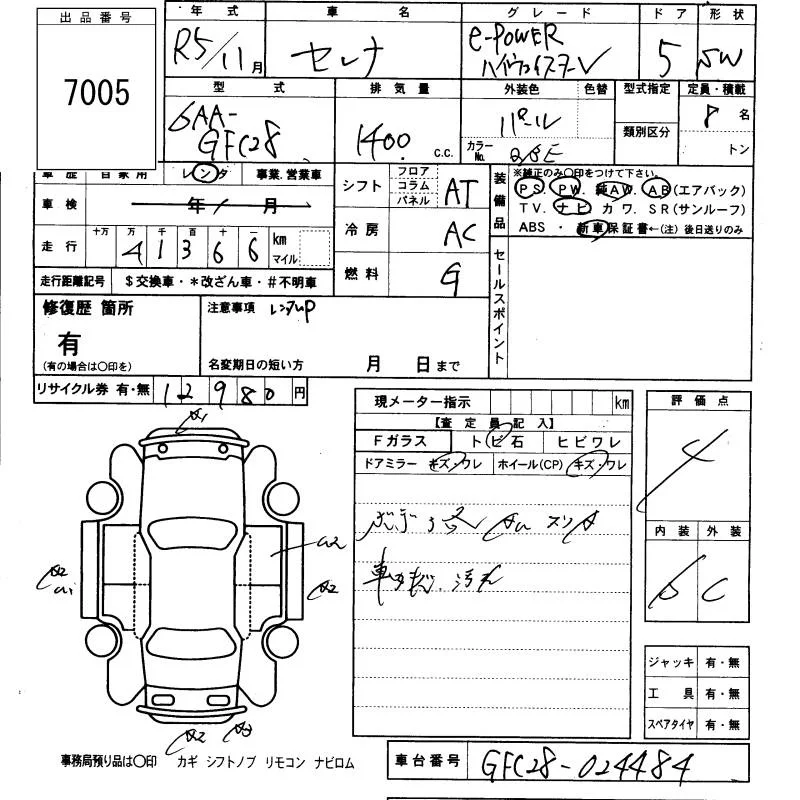 出品番号
7005
年式 車名 グレード ドア 形状
R5/11月 セレナ e-POWER ハイウェイスターV 5 SW
型式 排気量 外装色 色替 型式指定 定員・積載
6AA-GFC28 1400 c.c. パール 8名
カラーNo. 類別区分 トン
車歴 自家用 レンタ 事業.営業車
車検 年 月
走行 十万 万 千 百 十 一
4 1 3 6 6 km マイル
走行距離記号 $交換車・*改ざん車・#不明車
シフト フロア コラム パネル AT
冷房 AC
燃料 G
装備品
※純正のみ〇印をつけて下さい。
PS PW. 純AW. AB(エアバック)
TV. ナビ カワ. SR(サンルーフ)
ABS・新車保証書←(注)後日送りのみ
セールスポイント
修復歴 箇所
有
(有の場合は〇印を)
注意事項 レンタUP
名変期日の短い方 月 日まで
リサイクル券 有・無 12980円
現メーター指示 km
【査定員記入】
Fガラス トビ石 ヒビワレ
ドアミラー キズ・ワレ ホイール(CP) キズ・ワレ
スリキ
車内 汚れ
評価点
4
内装 外装
C
ジャッキ 有・無
工具 有・無
スペアタイヤ 有・無
A1
A2
A2
A2
A3
事務局預り品は〇印 カギ シフトノブ リモコン ナビロム
車台番号 GFC28-024484